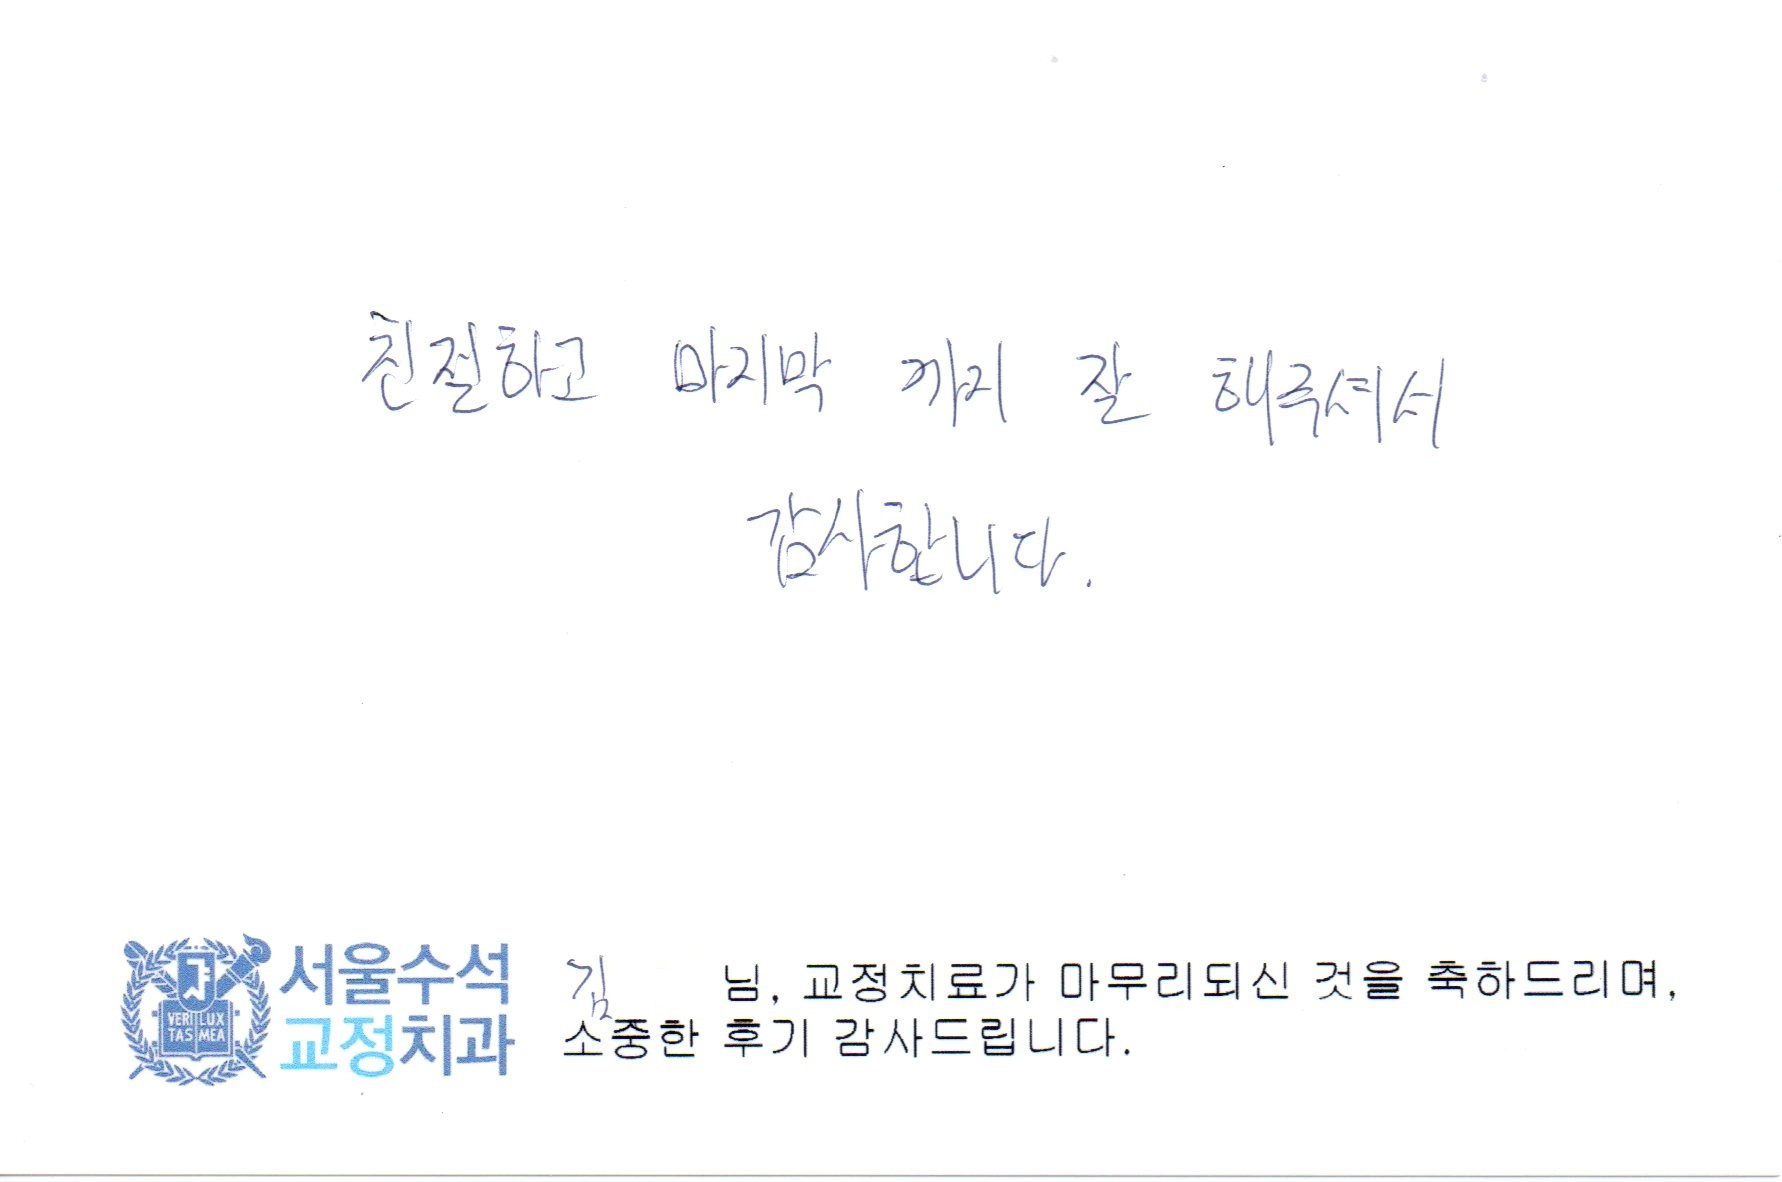 친절하고 마지막 까지 잘 해주셔서
감사합니다.
서울수석
교정치과
VERI LUX
TAS MEA
김 님, 교정치료가 마무리되신 것을 축하드리며,
소중한 후기 감사드립니다.